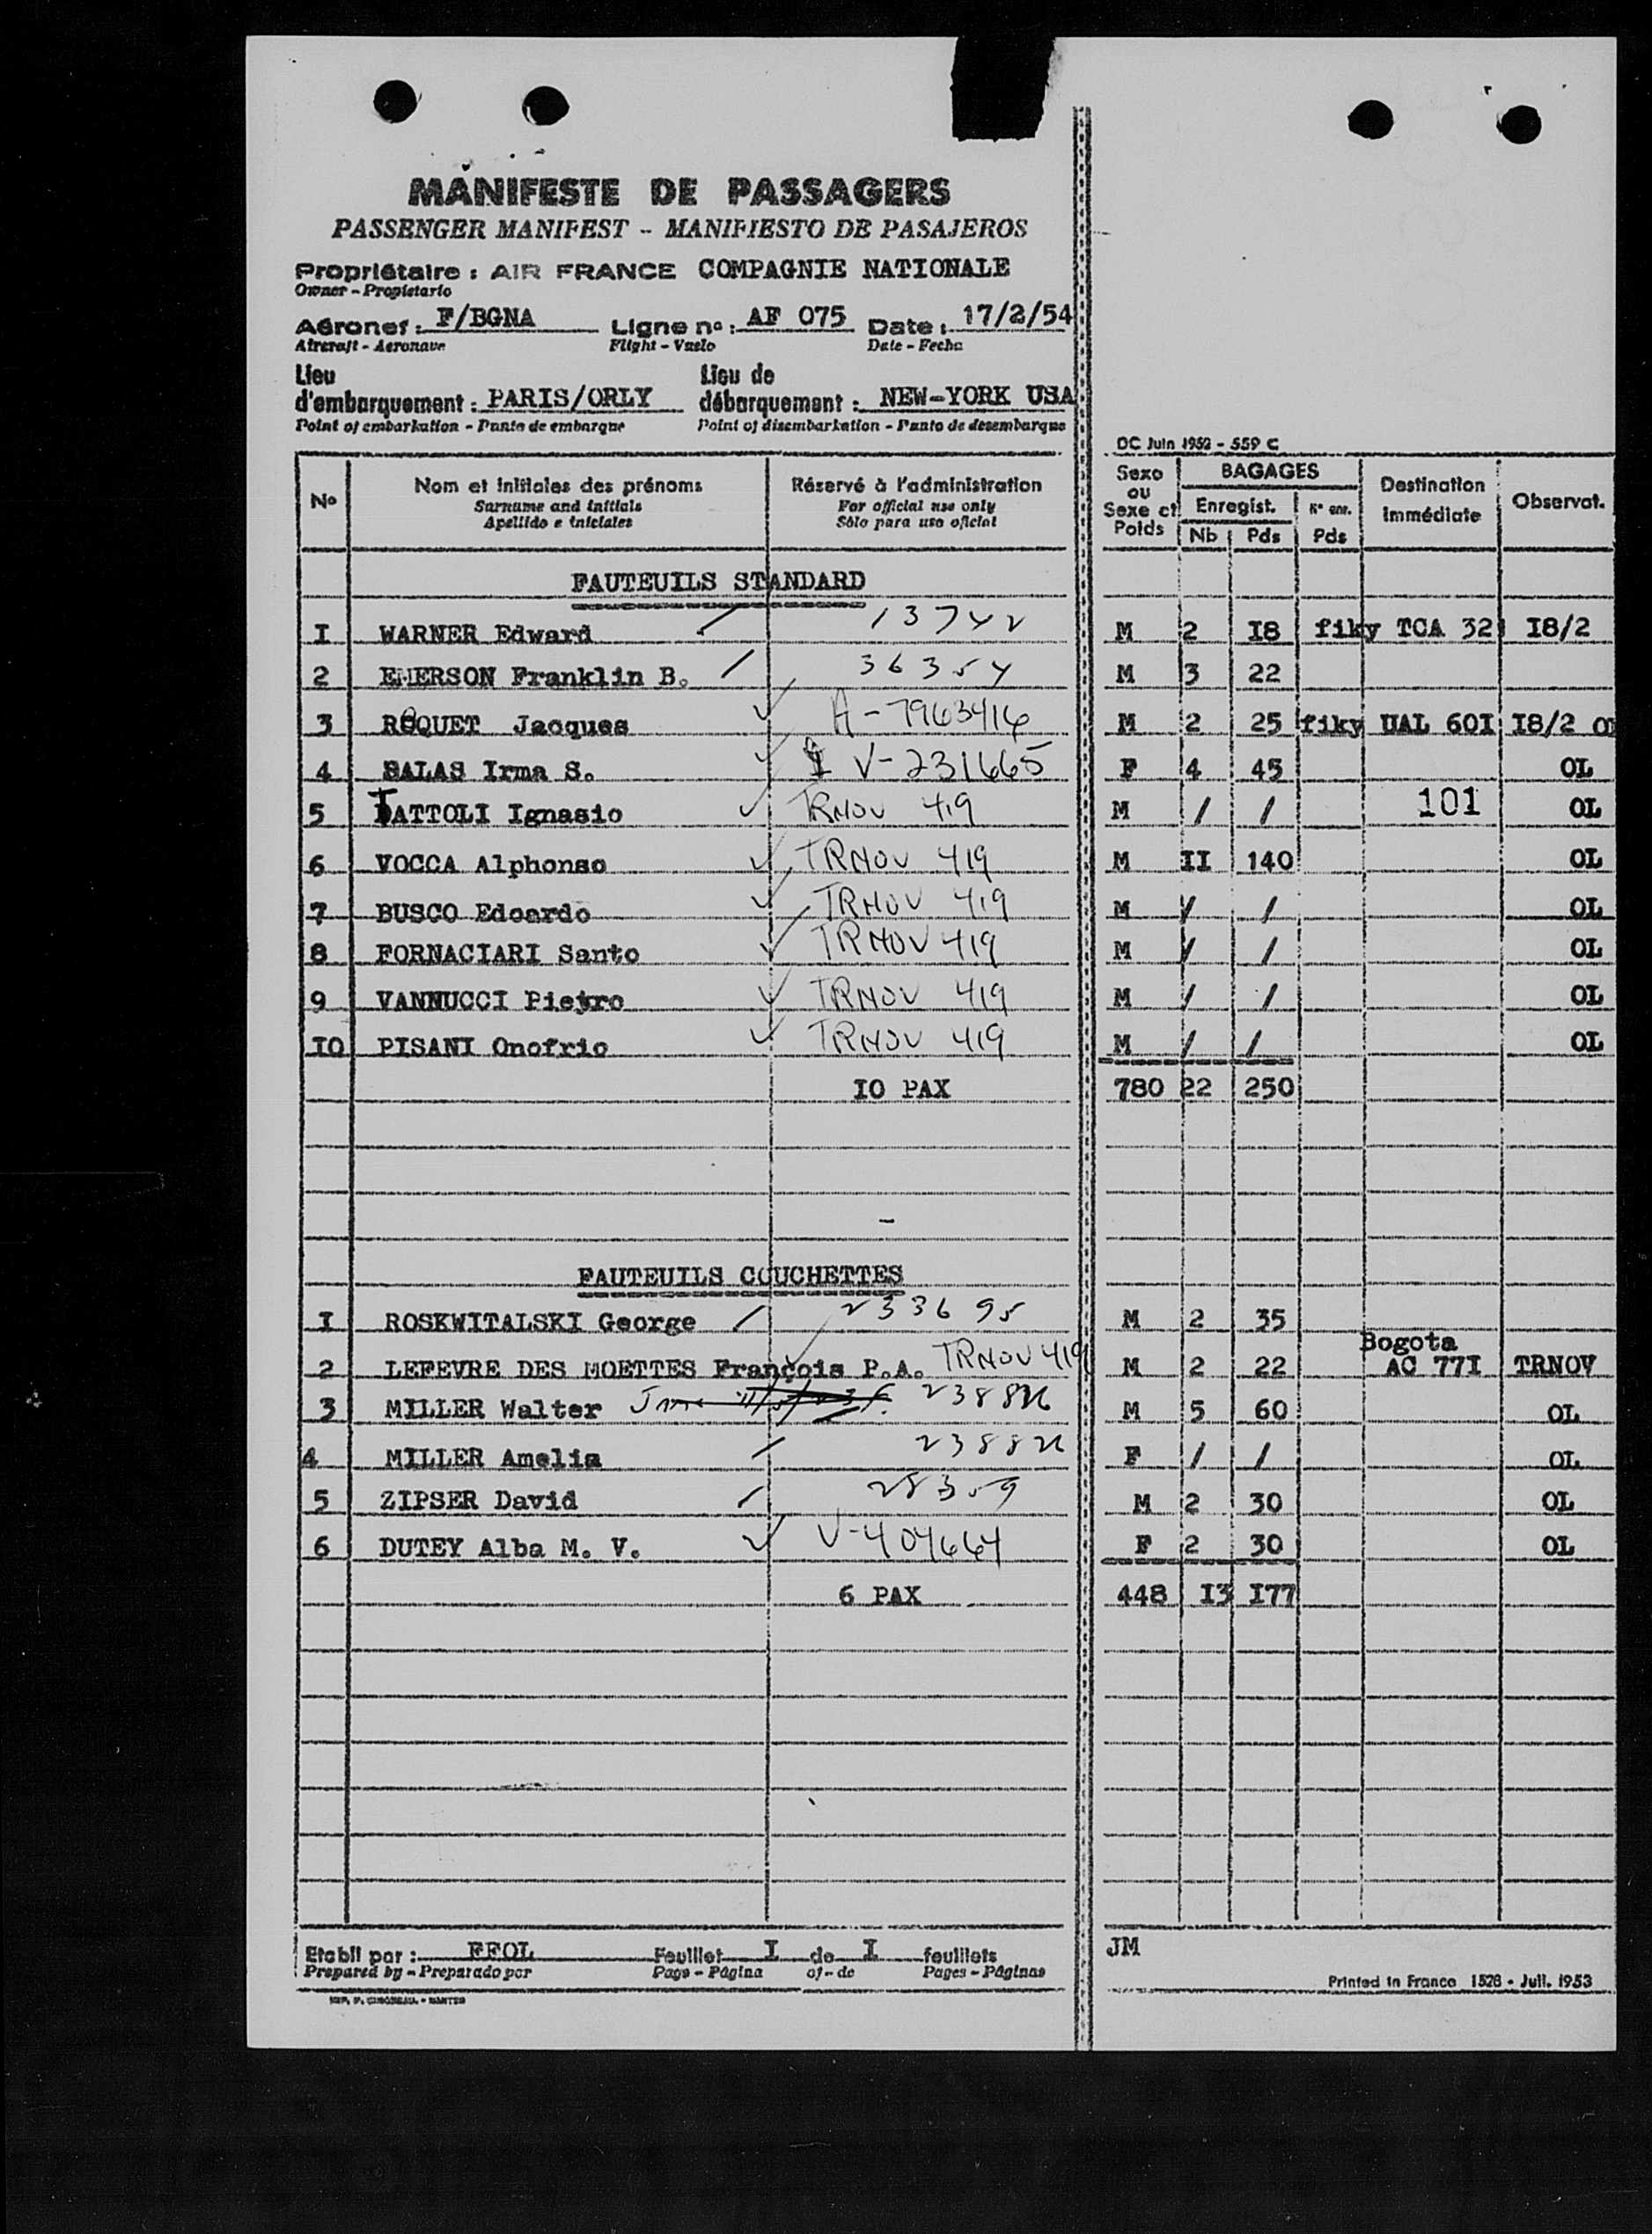 MANIFESTE DE PASSAGERS
PASSENGER MANIFEST - MANIFIESTO DE PASAJEROS
Propriétaire : AIR FRANCE COMPAGNIE NATIONALE
Owner - Propietario
Aéronef : F/BGNA Ligne no : AF 075 Date : 17/2/54
Aircraft - Aeronave Flight - Vuelo Date - Fecha
Lieu d'embarquement : PARIS/ORLY Lieu de débarquement : NEW-YORK USA
Point of embarkation - Punto de embarque Point of disembarkation - Punto de desembarque
OC Juin 1952 - 559 C
No Nom et initiales des prénoms Réservé à l'administration Sexe ou Sexe et Poids BAGAGES Destination immédiate Observat.
Surname and initials For official use only Enregist. No enr.
Apellido e iniciales Sólo para uso oficial Nb Pds Pds
FAUTEUILS STANDARD
I WARNER Edward 13742 M 2 I8 fiky TCA 32 I8/2
2 EMERSON Franklin B. 36354 M 3 22
3 ROQUET Jacques A-7963416 M 2 25 fiky UAL 60I I8/2
4 SALAS Irma S. V-231665 F 4 45 OL
5 TATTOLI Ignasio TRNOV 419 M / / 101 OL
6 VOCCA Alphonso TRNOV 419 M II 140 OL
7 BUSCO Edoardo TRNOV 419 M / / OL
8 FORNACIARI Santo TRNOV 419 M / / OL
9 VANNUCCI Pietro TRNOV 419 M / / OL
IO PISANI Onofrio TRNOV 419 M / / OL
IO PAX 780 22 250
FAUTEUILS COUCHETTES
I ROSKWITALSKI George 233695 M 2 35
2 LEFEVRE DES MOETTES François P.A. TRNOV 419 M 2 22 Bogota AC 77I TRNOV
3 MILLER Walter M 5 60 OL
4 MILLER Amelia F / / OL
5 ZIPSER David 28359 M 2 30 OL
6 DUTEY Alba M. V. V-404664 F 2 30 OL
6 PAX 448 I3 I77
Etabli par : FFOL Feuillet I de I feuillets JM
Prepared by - Preparado por Page - Página of - de Pages - Páginas
Printed in France 1528 - Juil. 1953